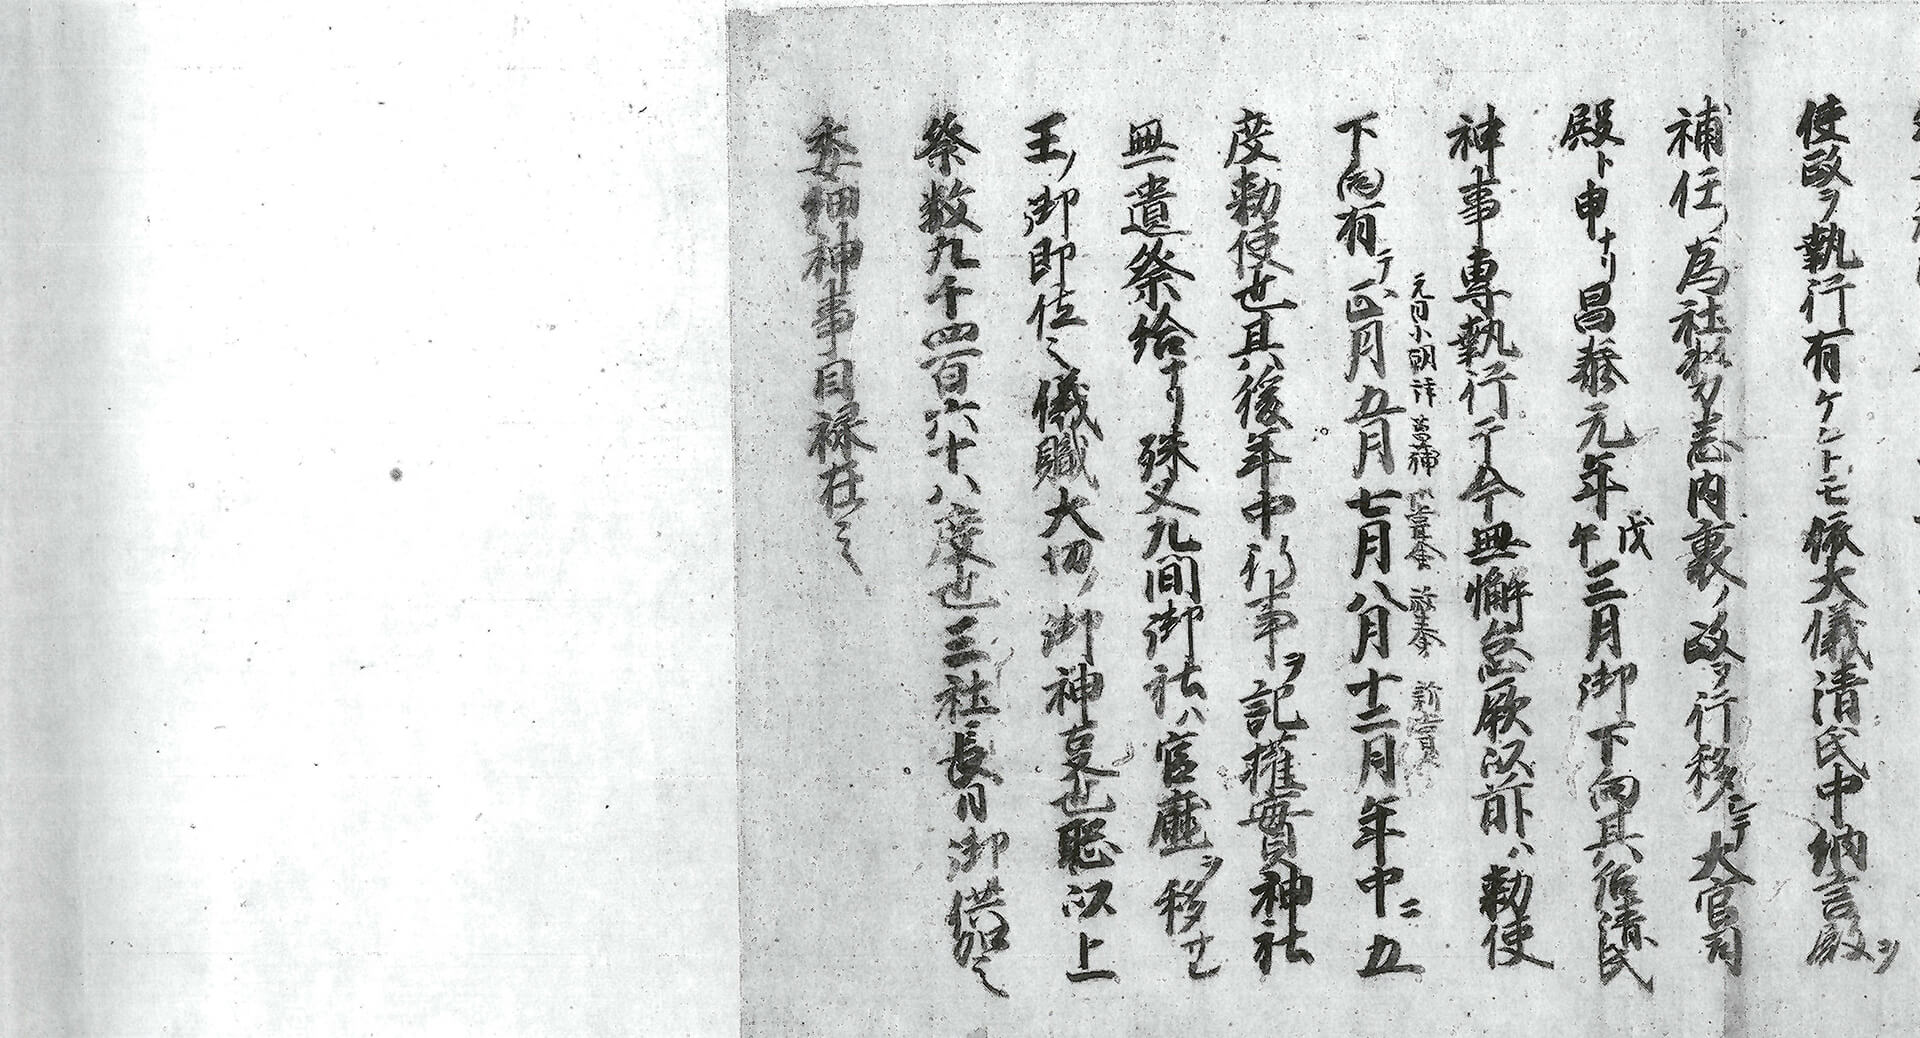 使政ヲ執行有ケントモ依大儀清氏中納言殿ヲ
補任ノ為社務志内裏ノ政ヲ行移シテ大宮司
殿ト申ナリ昌泰元年戊午三月御下向其后清氏
神事専執行テ今無懈怠厥以前ハ勅使
元日小朝拝
下向有テ正月五月七月八月十二月年中ニ五
度勅使也其後年中行事ヲ記權實神社
無遺祭給ナリ殊又九間御社ハ官廰ヲ移せ
王ノ御即位之儀職大切ノ御神叓也惣以上
祭数九千四百六十八度也三社長日御供如之
委細神事目禄在之